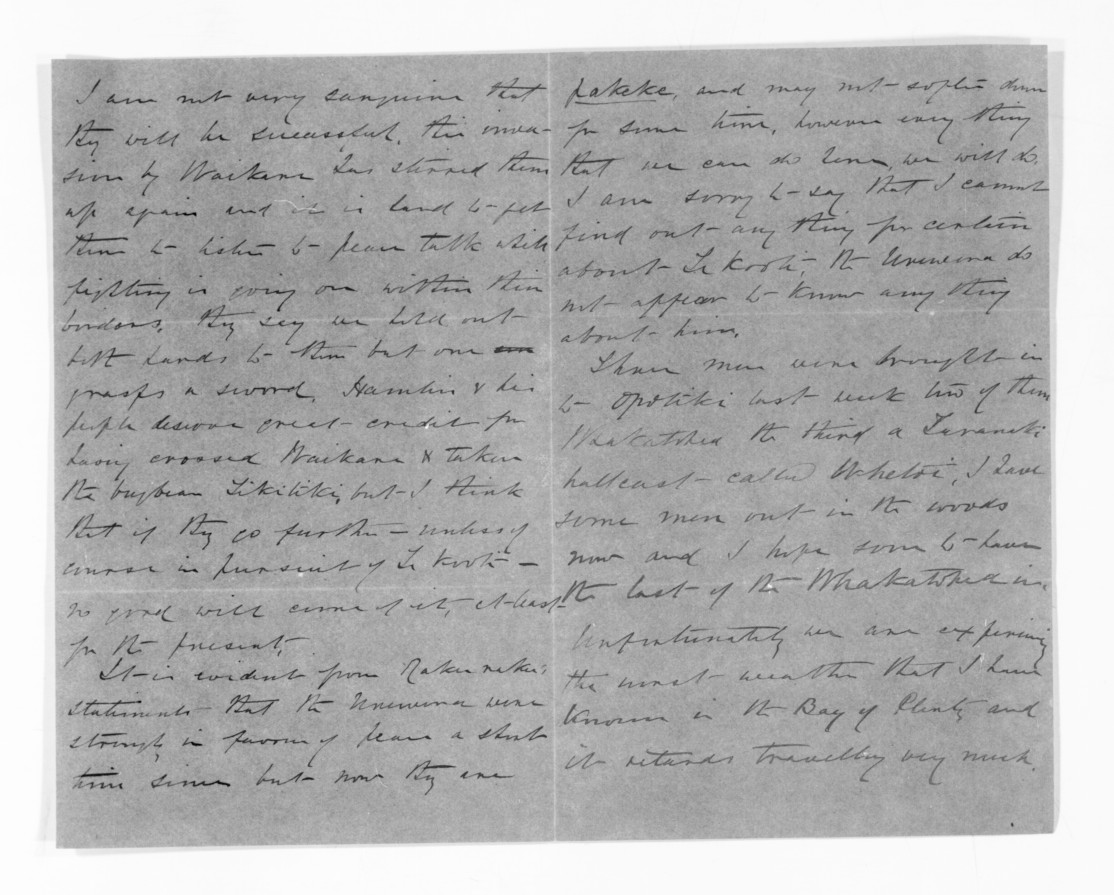 I am not very sanguine that
they will be successful, this inva-
sion by Waikare has stirred them
up again and it is hard to get
them to listen to peace talk while
fighting is going on within their
borders. They say we hold out
both hands to them but one
grasps a sword. Hamlin & his
people deserve great credit for
having crossed Waikare & taken
the bugbear Tikitiki, but I think
that if they go further – unless of
course in pursuit of Te Kooti –
no good will come of it, at least
for the present.
It is evident from Rakuraku's
statements that the Urewera were
strongly in favour of peace a short
time since but now they are
pakeke, and may not soften down
for some time, however every thing
that we can do here, we will do.
I am sorry to say that I cannot
find out any thing for certain
about Te Kooti, the Urewera do
not appear to know any thing
about him.
Three men were brought in
to Opotiki last week two of them
Whakatohea the third a Taranaki
halfcast called Whetoi, I have
some men out in the woods
now and I hope soon to have
the last of the Whakatohea in.
Unfortunately we are experiencing
the worst weather that I have
known in the Bay of Plenty and
it retards travelling very much.